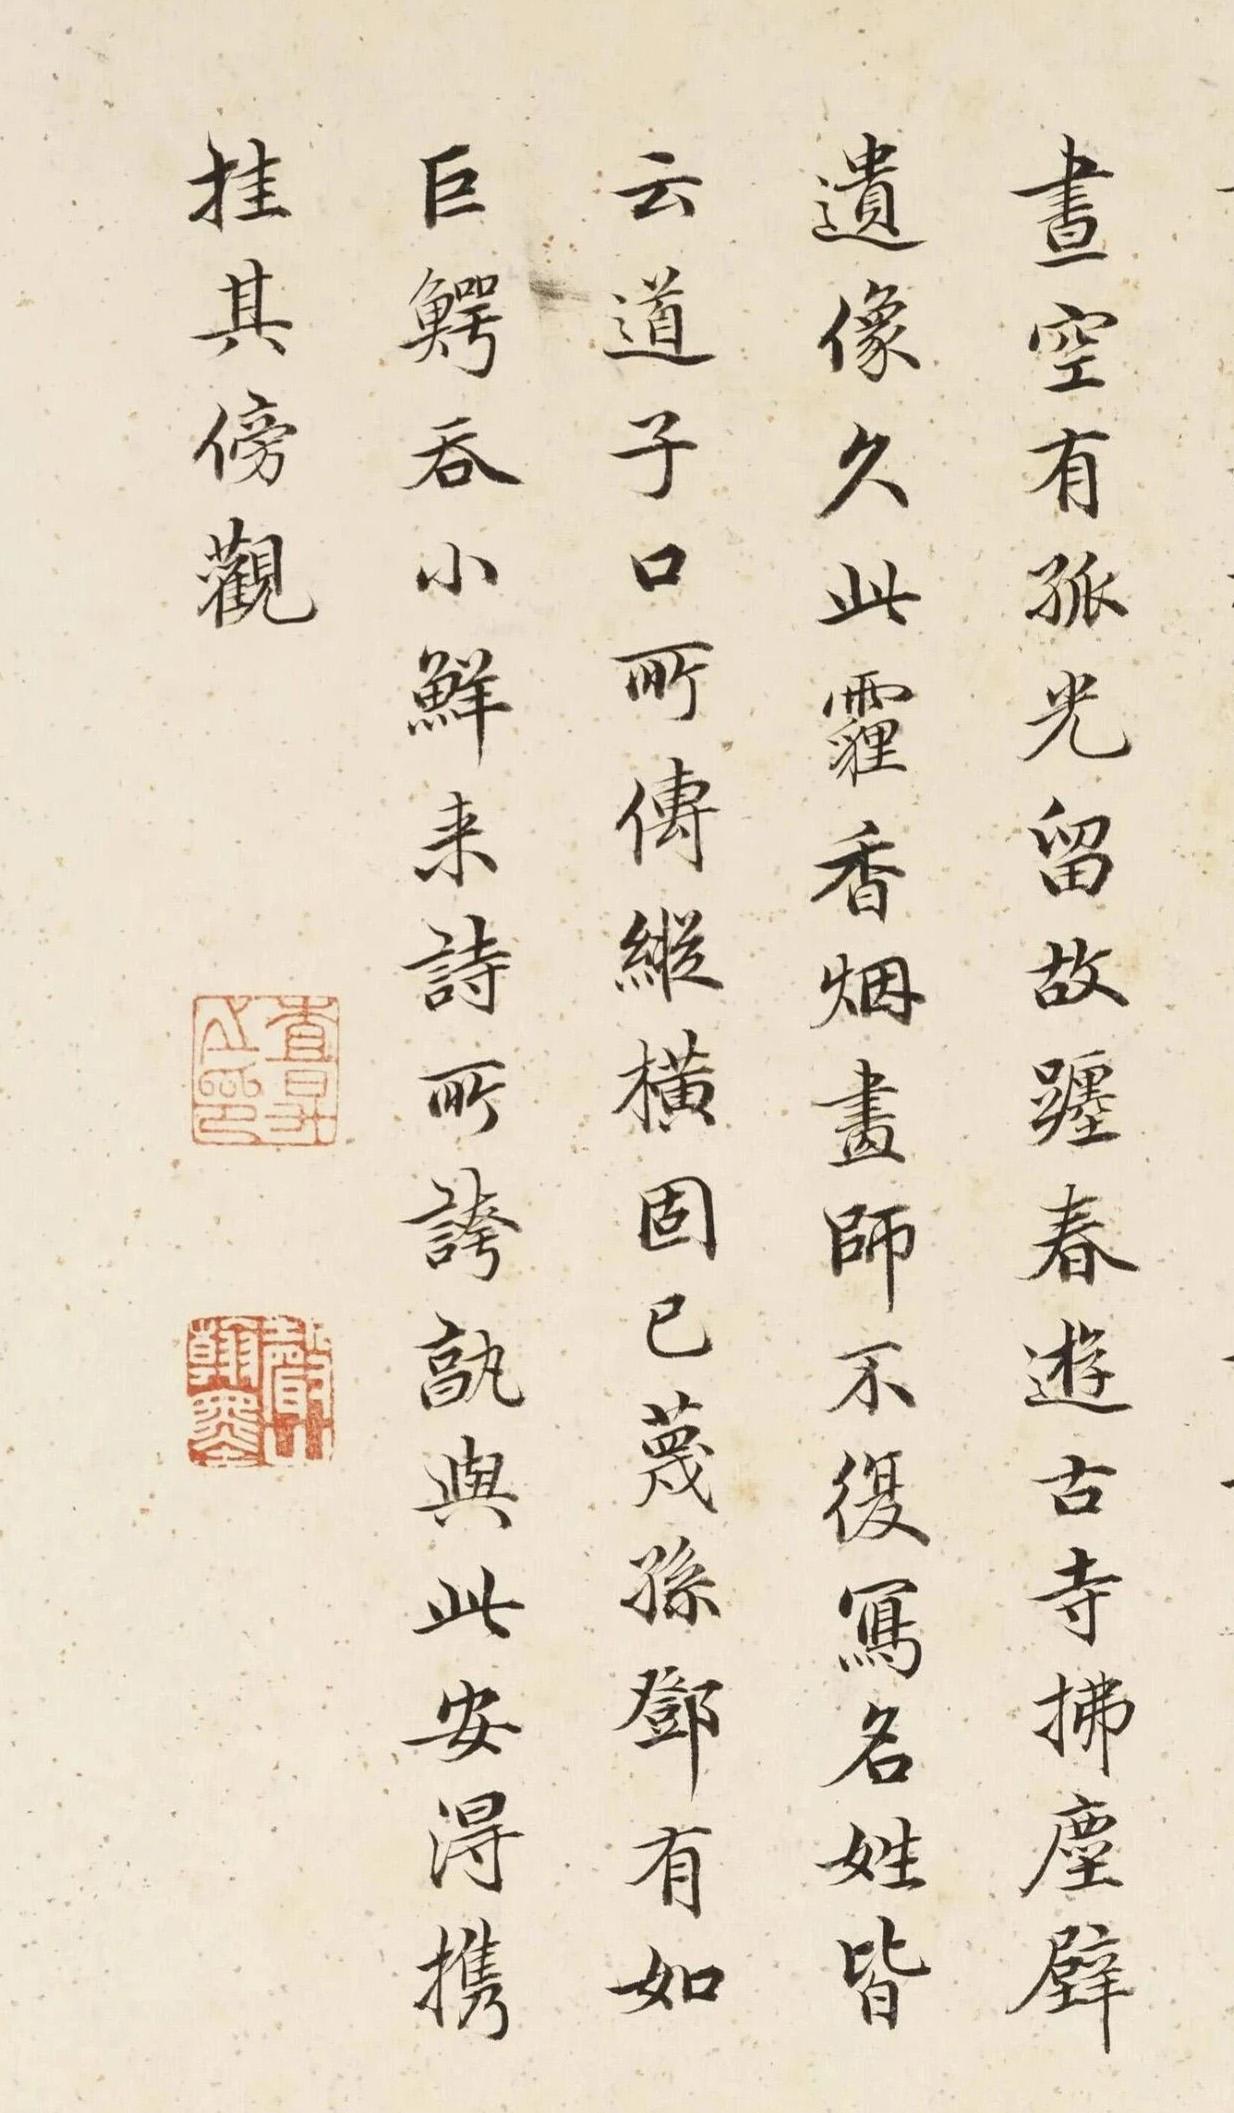 晝空有孤光留故躔春遊古寺拂塵壁
遺像久此霾香烟畫師不復寫名姓皆
云道子口所傳縱橫固已蔑孫鄧有如
巨鱷吞小鮮来詩所誇孰與此安得携
挂其傍觀
查昇之印
聲山翰墨